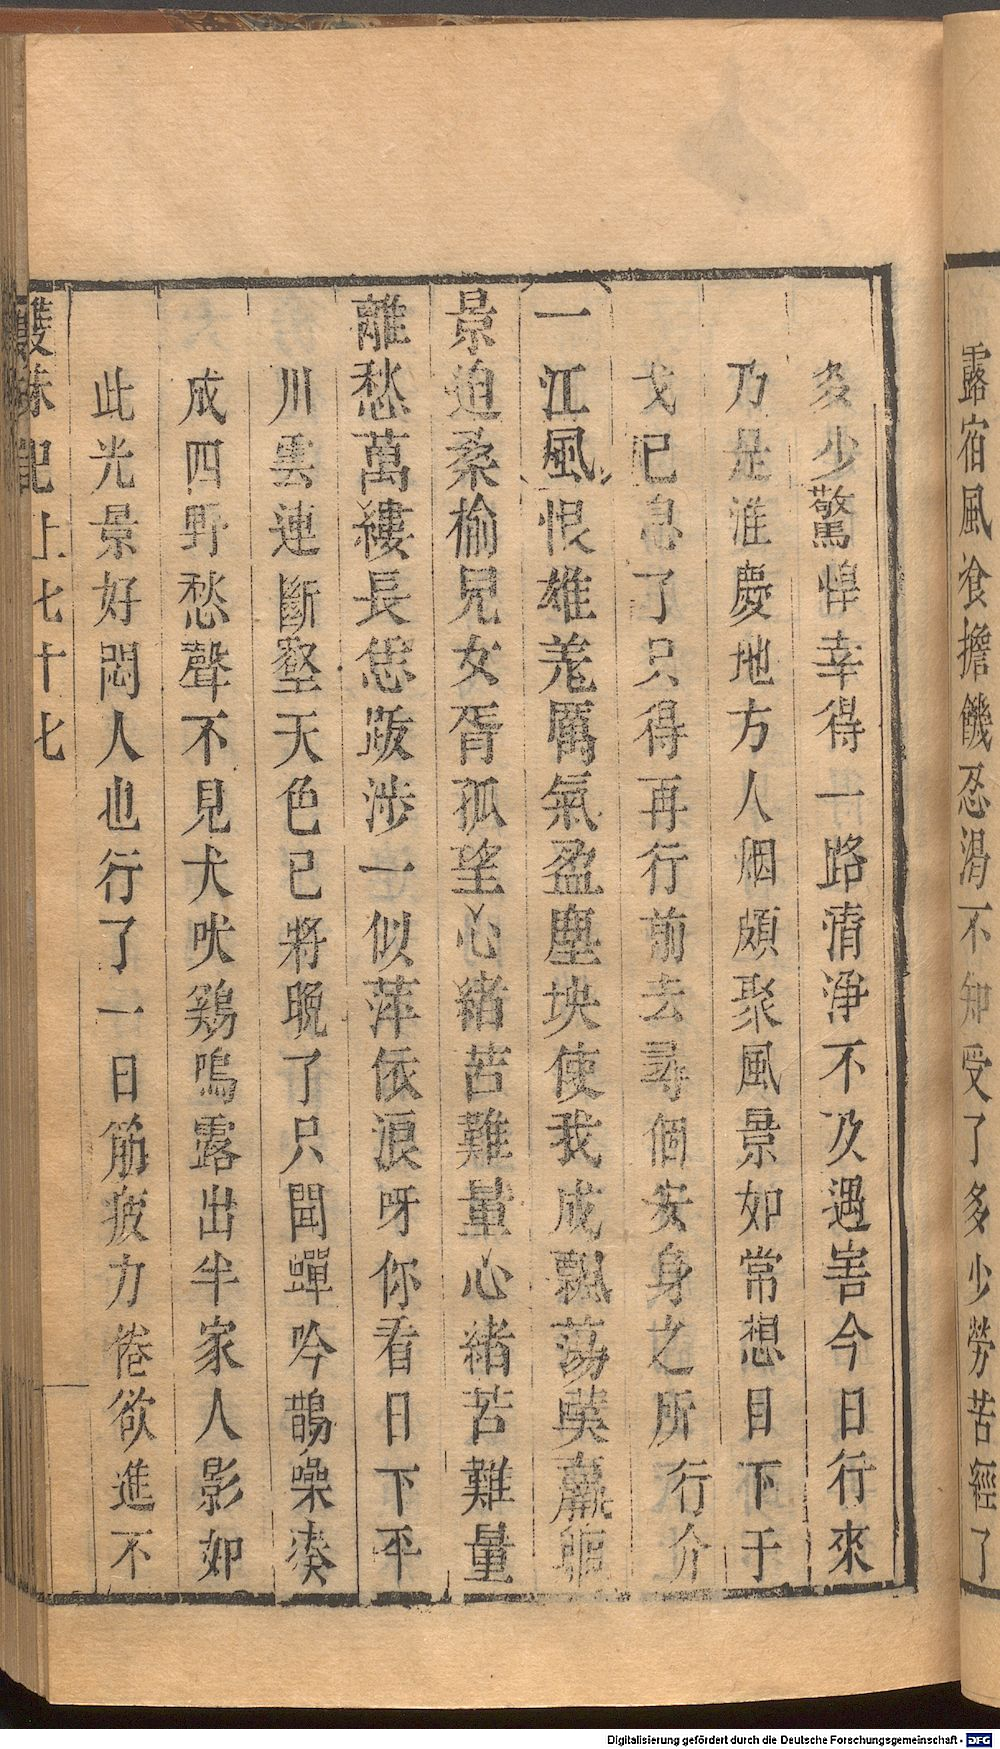 露宿風飡擔饑忍渴不知受了多少勞苦經了
多少驚惶幸得一路清淨不及遇害今日行來
乃是淮慶地方人烟頗聚風景如常想目下于
戈已息了只得再行前去尋個安身之所 行介
一江風恨雄羗厲氣盈塵块使我成飄荡英蠃軀
景迫桑榆兒女胥孤望心緒苦難量心緒苦難量
離愁萬縷長恁跋涉一似萍依浪呀你看日下平
川雲連斷壑天色已將晚了只聞蟬吟鵲噪凑
成四野愁聲不見犬吠鷄鳴露出半家人影如
此光景好悶人也行了一日筋疲力倦欲進不
雙 記上七十七
Digitalisierung gefördert durch die Deutsche Forschungsgemeinschaft - DFG